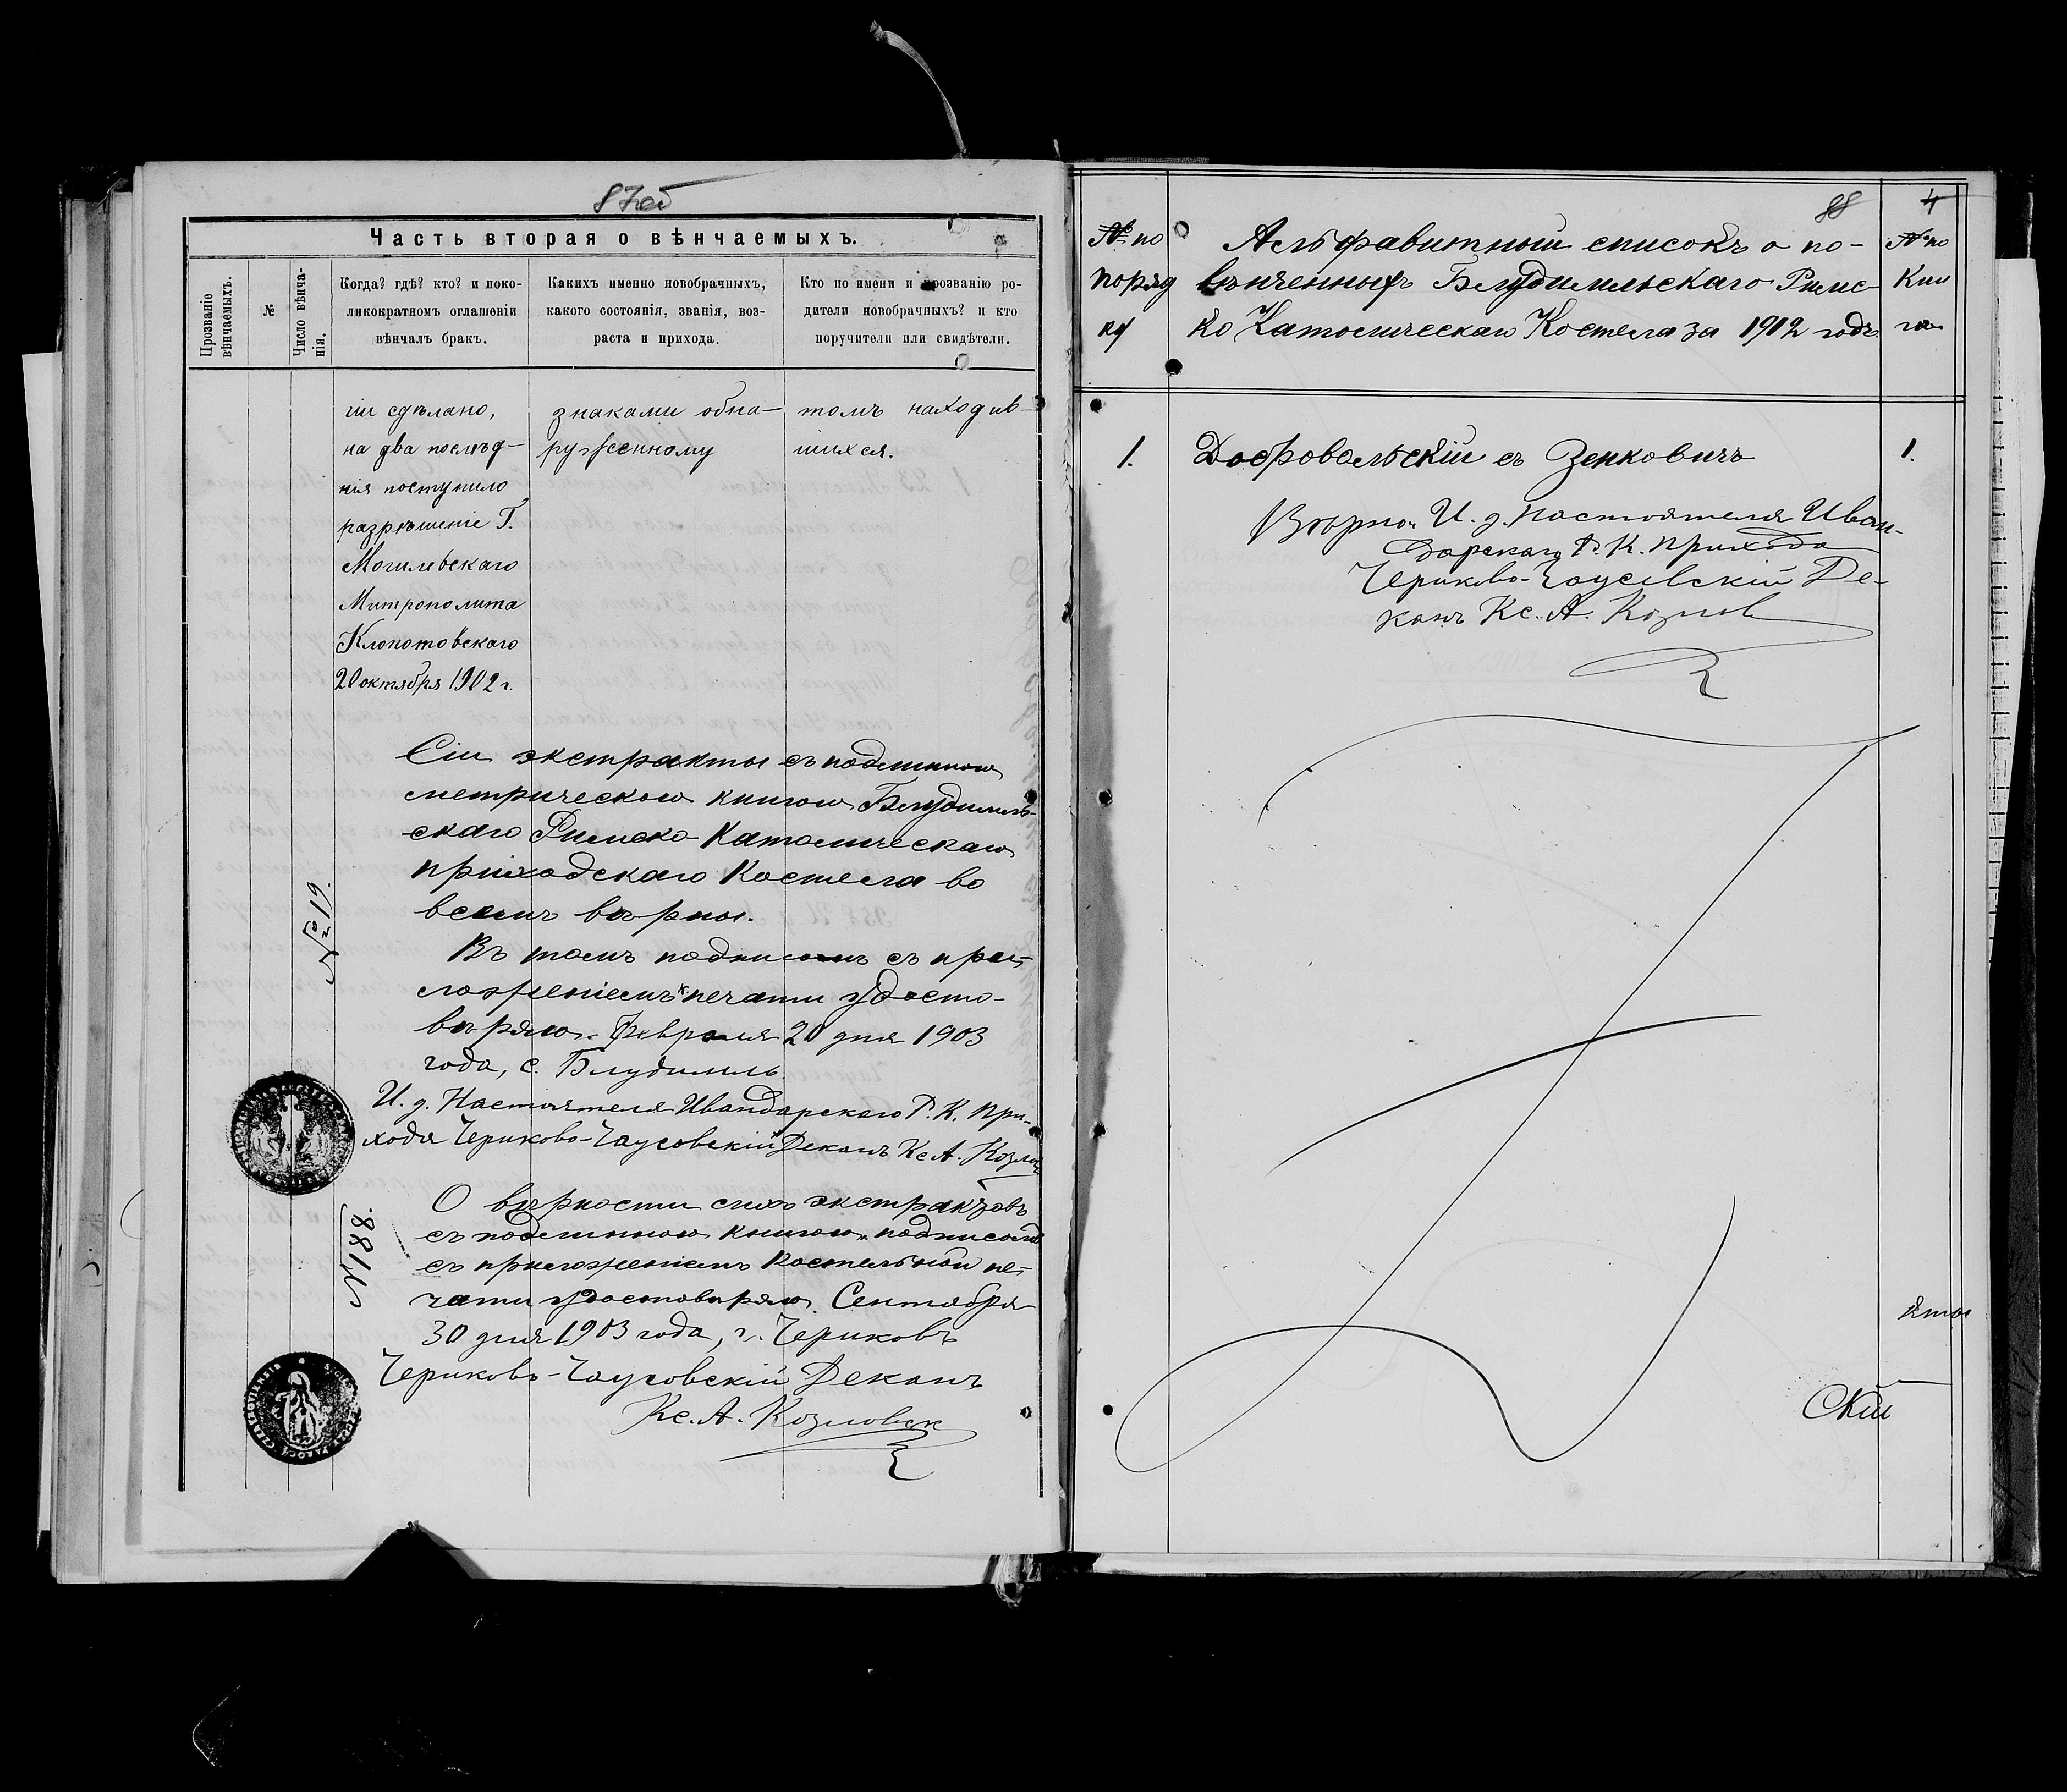 87об
Часть вторая о вѣнчаемыхъ.
Прозваніе вѣнчаемыхъ.
№
Число вѣнча-
нія.
Когда? гдѣ? кто? и поко-
ликократномъ оглашеніи
вѣнчалъ бракъ.
Какихъ именно новобрачныхъ,
какого состоянія, званія, воз-
раста и прихода.
Кто по имени и прозванію ро-
дители новобрачныхъ? и кто
поручители или свидѣтели.
ги сдѣлано,
на два послѣд-
нія поступило
разрѣшеніе Г.
Могилевскаго
Митрополита
Клопотовскаго
20 октября 1902 г.
знаками обна-
руженному
томъ находив-
шихся.
Сіи экстракты съ подлинною
метрическою книгою Блудимль-
скаго Римско-Католическаго
приходскаго Костела во
всемъ вѣрны.
№ 19.
Въ томъ подписомъ съ при-
ложеніемъ к. печати удосто-
вѣряю. Февраля 20 дня 1903
года, с. Блудимль.
И. д. Настоятеля Ивандарскаго Р. К. При-
хода Чериково-Чаусовскій Деканъ Кс. А. Козлов
О вѣрности сихъ экстрактовъ
съ подлинною книгою подписомъ
съ приложеніемъ Костельной пе-
чати удостовѣряю. Сентября
30 дня 1903 года, г. Чериковъ
N 188.
Чериково-Чаусовскій Деканъ
Кс. А. Козловск
88
4
№ по
поряд
ку
Альфавитный списокъ о по-
вѣнченныхъ Блудимльскаго Римс-
ко Католическаго Костела за 1902 годъ.
№ по
Кни
гѣ
1. Добровольскій съ Зенковичъ 1.
Вѣрно: И. д. Настоятеля Иван-
дарскаго Р. К. Прихода
Чериково-Чаусовскій Де-
канъ Кс. А. Козлов
скій